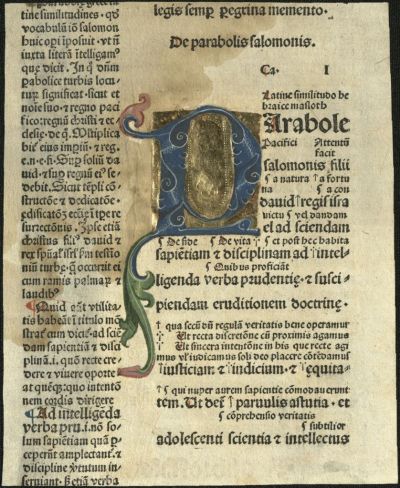 tine similitudines · qȝ
vocabulū iō salomon
huic opi īposuit · vt nō
iuxta literā ītelligam⁹
que dicit · In q̄ dnm̄
parabolice turbis locu-
turȝ significat · sicut et
noīe suo · ⁊ regno paci
fico regnū christi ⁊ ec-
clesie · de q̄ · Multiplica
bit᷑ eius impiū · ⁊ reg-
dauid ⁊ sup regnū ei⁹ se-
debit · Sicut tēpli cō-
structōe ⁊ dedicatōe ·
surrectonis · Ipse etiā
christus fili⁹ dauid ⁊
niū turbe · q̄ occurrit ei
cum ramis palmaꝝ ⁊
laudib⁹
Quid aūt vtilita
tis habeāt i titulo mō
strat᷑ cum dicit · ad sci-
dam sapientiā ⁊ disci
plinā · i · quo recte cre-
dere ⁊ viuere oporte
at quēqȝ · quo intentō
nem cordis dirigere
Ad intelligēda
verba pru · i · nō so-
lum sapientiam quā p̄-
ceperūt amplectant᷑ · ⁊
discipline v̓tutum in-
seruiant · ß etiā verba
legis semp̄ peregrina memento ·
De parabolis salomonis ·
Ca · I
Latine similitudo he
braice masloth
PArabole
Pacifici Attentū
facit
salomonis filii
¶ a natura ¶ a fortu
na ¶ a con
dauid regis isra
uictu ¶ vel dandam
el ad sciendam
¶ De fide ¶ De vita ¶ et post hec habita
sapiētiam ⁊ disciplinam ad intel-
¶ Quibus proficiāt
ligenda verba prudentie · ⁊ susci-
piendam eruditionem doctrine ·
¶ qua secū dū regulā veritatis bene operamur
Ut recta discretōne cū proximis agamus
Ut sincera intentōne in his que recte agi
mus vl̓ iudicamus soli deo placere cōtēdamus
iusticiam · ⁊ iudicium · ⁊ equita-
¶ qui nuper aurem sapientie cōmodauerunt
tem · Ut det᷑ ¶ paruulis astutia · et
¶ cōprehensio veritatis
¶ subtilior
adolescenti scientia ⁊ intellectus